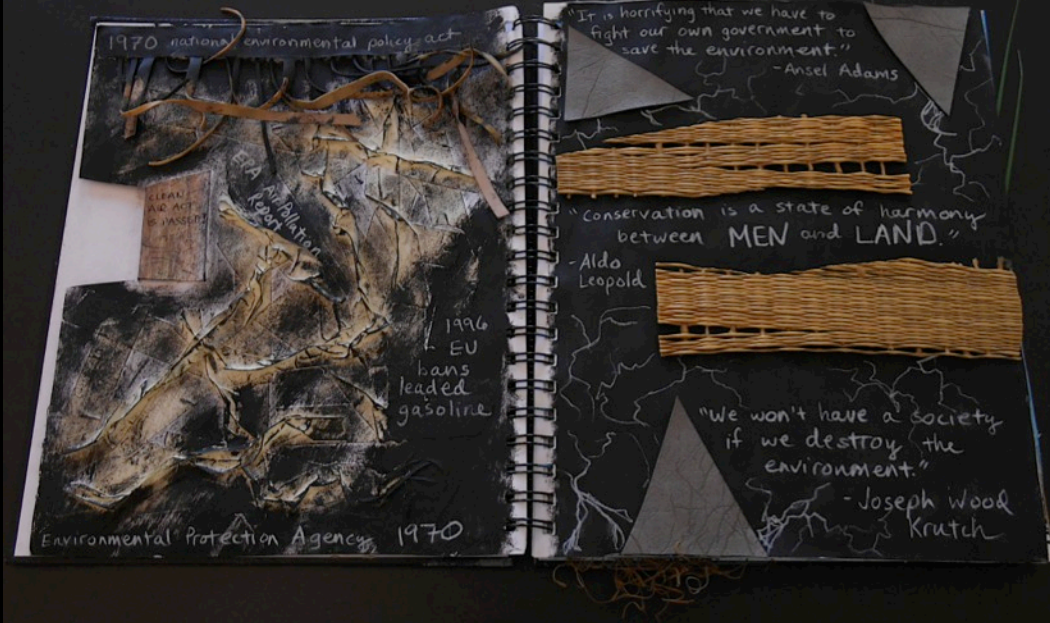 1970 national environmental policy act
CLEAN
AIR ACT
PASSED
EPA Air Pollution
Report
1996
EU
bans
leaded
gasoline
Environmental Protection Agency 1970
"It is horrifying that we have to
fight our own government to
save the environment."
-Ansel Adams
"Conservation is a state of harmony
between MEN and LAND."
-Aldo
Leopold
"We won't have a society
if we destroy the
environment."
- Joseph Wood
Krutch